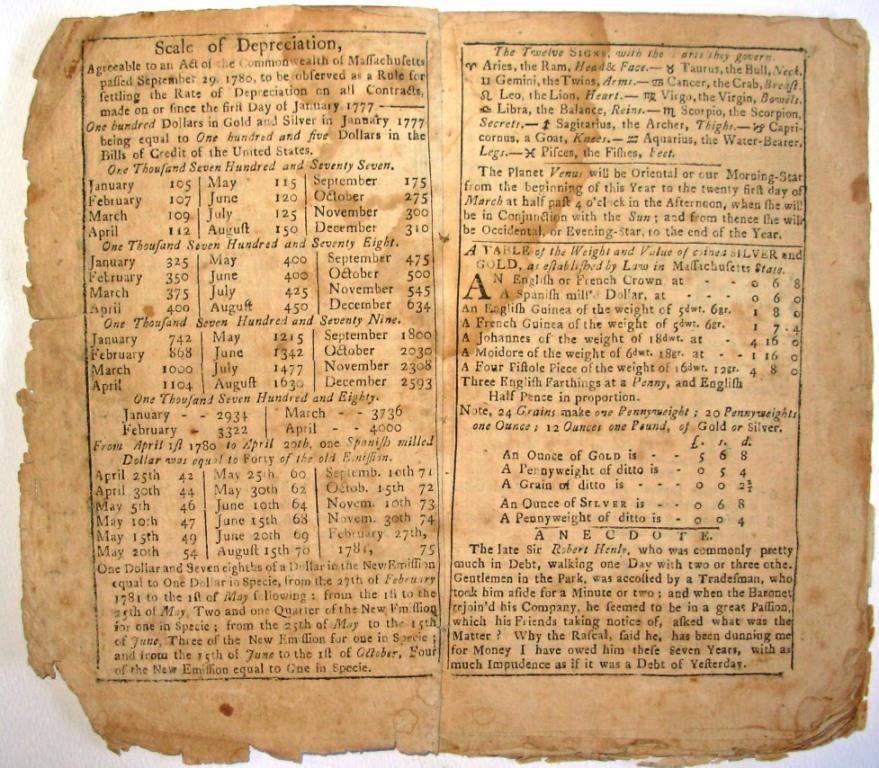 Scale of Depreciation,
Agreeable to an Act of the Commonwealth of Maſſachuſetts
paſſed September 29. 1780, to be obſerved as a Rule for
ſettling the Rate of Depreciation on all Contracts,
made on or ſince the firſt Day of January 1777
One hundred Dollars in Gold and Silver in January 1777
being equal to One hundred and five Dollars in the
Bills of Credit of the United States.
One Thouſand Seven Hundred and Seventy Seven.
January 105 | May 115 | September 175
February 107 | June 120 | October 275
March 109 | July 125 | November 300
April 112 | Auguſt 150 | December 310
One Thouſand Seven Hundred and Seventy Eight.
January 325 | May 400 | September 475
February 350 | June 400 | October 500
March 375 | July 425 | November 545
April 400 | Auguſt 450 | December 634
One Thouſand Seven Hundred and Seventy Nine.
January 742 | May 1215 | September 1800
February 868 | June 1342 | October 2030
March 1000 | July 1477 | November 2308
April 1104 | Auguſt 1630 | December 2593
One Thouſand Seven Hundred and Eighty.
January - - 2934 | March - - 3736
February - 3322 | April - - 4000
From April 1ſt 1780 to April 20th, one Spaniſh milled
Dollar was equal to Forty of the old Emiſſion.
April 25th 42 | May 25th 60 | Septemb. 10th 71
April 30th 44 | May 30th 62 | Octob. 15th 72
May 5th 46 | June 10th 64 | Novem. 10th 73
May 10th 47 | June 15th 68 | Novem. 30th 74
May 15th 49 | June 20th 69 | February 27th,
May 20th 54 | Auguſt 15th 70 | 1781, 75
One Dollar and Seven eighths of a Dollar in the New Emiſſion
equal to One Dollar in Specie, from the 27th of February
1781 to the 1ſt of May following: from the 1ſt to the
25th of May, Two and one Quarter of the New Emiſſion
for one in Specie; from the 25th of May to the 15th
of June, Three of the New Emiſſion for one in Specie;
and from the 15th of June to the 1ſt of October, Four
of the New Emiſſion equal to One in Specie.
The Twelve SIGNS, with the Parts they govern.
♈ Aries, the Ram, Head & Face.— ♉ Taurus, the Bull, Neck.
♊ Gemini, the Twins, Arms.— ♋ Cancer, the Crab, Breaſt.
♌ Leo, the Lion, Heart.— ♍ Virgo, the Virgin, Bowels.
♎ Libra, the Balance, Reins.— ♏ Scorpio, the Scorpion,
Secrets.— ♐ Sagitarius, the Archer, Thighs.— ♑ Capri-
cornus, a Goat, Knees.— ♒ Aquarius, the Water-Bearer,
Legs.— ♓ Piſces, the Fiſhes, Feet.
The Planet Venus will be Oriental or our Morning-Star
from the beginning of this Year to the twenty firſt day of
March at half paſt 4 o'clock in the Afternoon, when ſhe will
be in Conjunction with the Sun; and from thence ſhe will
be Occidental, or Evening-Star, to the end of the Year.
A TABLE of the Weight and Value of coined SILVER and
GOLD, as eſtabliſhed by Law in Maſſachuſetts State.
AN Engliſh or French Crown at - - 0 6 8
A Spaniſh mill'd Dollar, at - - - 0 6 0
An Engliſh Guinea of the weight of 5dwt. 6gr. 1 8 0
A French Guinea of the weight of 5dwt. 6gr. 1 7 4
A Johannes of the weight of 18dwt. at - 4 16 0
A Moidore of the weight of 6dwt. 18gr. at - - 1 16 0
A Four Piſtole Piece of the weight of 16dwt. 12gr. 4 8 0
Three Engliſh Farthings at a Penny, and Engliſh
Half Pence in proportion.
Note, 24 Grains make one Pennyweight; 20 Pennyweights
one Ounce; 12 Ounces one Pound, of Gold or Silver.
£. s. d.
An Ounce of GOLD is - - 5 6 8
A Pennyweight of ditto is - 0 5 4
A Grain of ditto is - - - 0 0 2⅔
An Ounce of SILVER is - - 0 6 8
A Pennyweight of ditto is - 0 0 4
ANECDOTE.
The late Sir Robert Henly, who was commonly pretty
much in Debt, walking one Day with two or three othe.
Gentlemen in the Park, was accoſted by a Tradeſman, who
took him aſide for a Minute or two; and when the Baronet
rejoin'd his Company, he ſeemed to be in a great Paſſion,
which his Friends taking notice of, aſked what was the
Matter? Why the Raſcal, ſaid he, has been dunning me
for Money I have owed him theſe Seven Years, with as
much Impudence as if it was a Debt of Yeſterday.